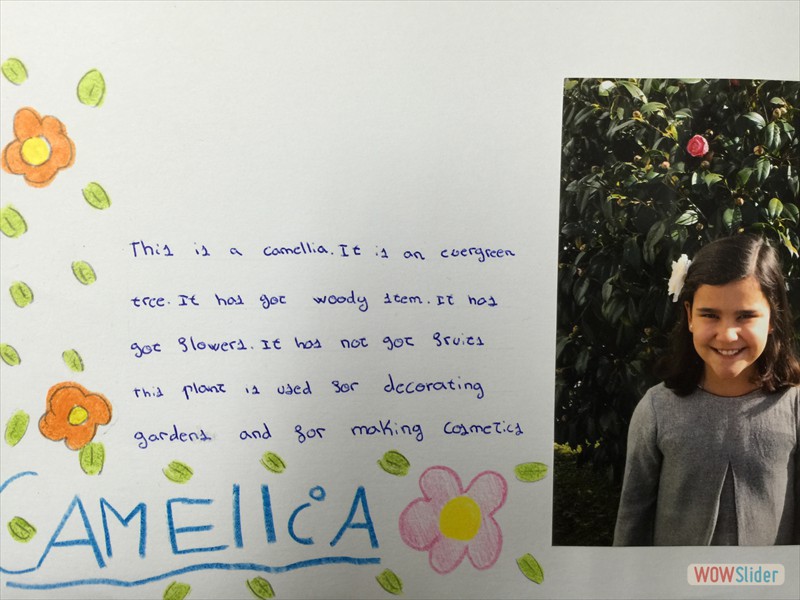 This is a camellia. It is an evergreen
tree. It has got woody stem. It has
got flowers. It has not got fruits
This plant is used for decorating
gardens and for making cosmetics
CAMEllıA
WOWSlider